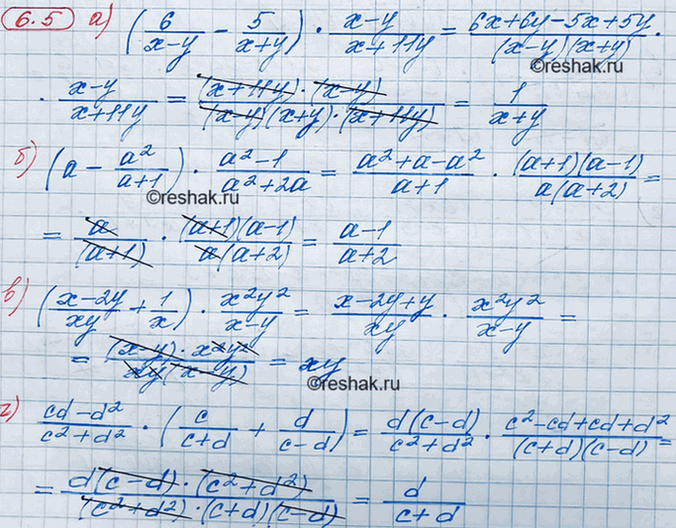 6.5 а) (6/(x-y) - 5/(x+y)) · (x-y)/(x+11y) = (6x+6y-5x+5y)/((x-y)(x+y)) ·
©reshak.ru
· (x-y)/(x+11y) = ((x+11y)·(x-y))/((x-y)(x+y)·(x+11y)) = 1/(x+y)
б) (a - a²/(a+1)) · (a²-1)/(a²+2a) = (a²+a-a²)/(a+1) · ((a+1)(a-1))/(a(a+2)) =
©reshak.ru
= a/(a+1) · ((a+1)(a-1))/(a(a+2)) = (a-1)/(a+2)
в) ((x-2y)/(xy) + 1/x) · (x²y²)/(x-y) = (x-2y+y)/(xy) · (x²y²)/(x-y) =
= ((x-y)·x²y²)/(xy(x-y)) = xy
©reshak.ru
г) (cd-d²)/(c²+d²) · (c/(c+d) + d/(c-d)) = (d(c-d))/(c²+d²) · (c²-cd+cd+d²)/((c+d)(c-d)) =
= (d(c-d)·(c²+d²))/((c²+d²)·(c+d)(c-d)) = d/(c+d)